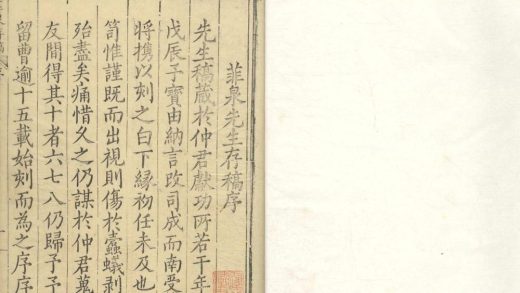 菲泉先生存稿序
先生稿蔵於仲君獻功所若干年
戊辰子寳由納言改司成而南受
将携以刻之白下縁初任未及也
笥惟謹既而出視則傷於蠹蟻剥
殆盡矣痛惜久之仍謀於仲君蒐
友間得其十者六七八仍歸予予
留曹逾十五載始刻而為之序序